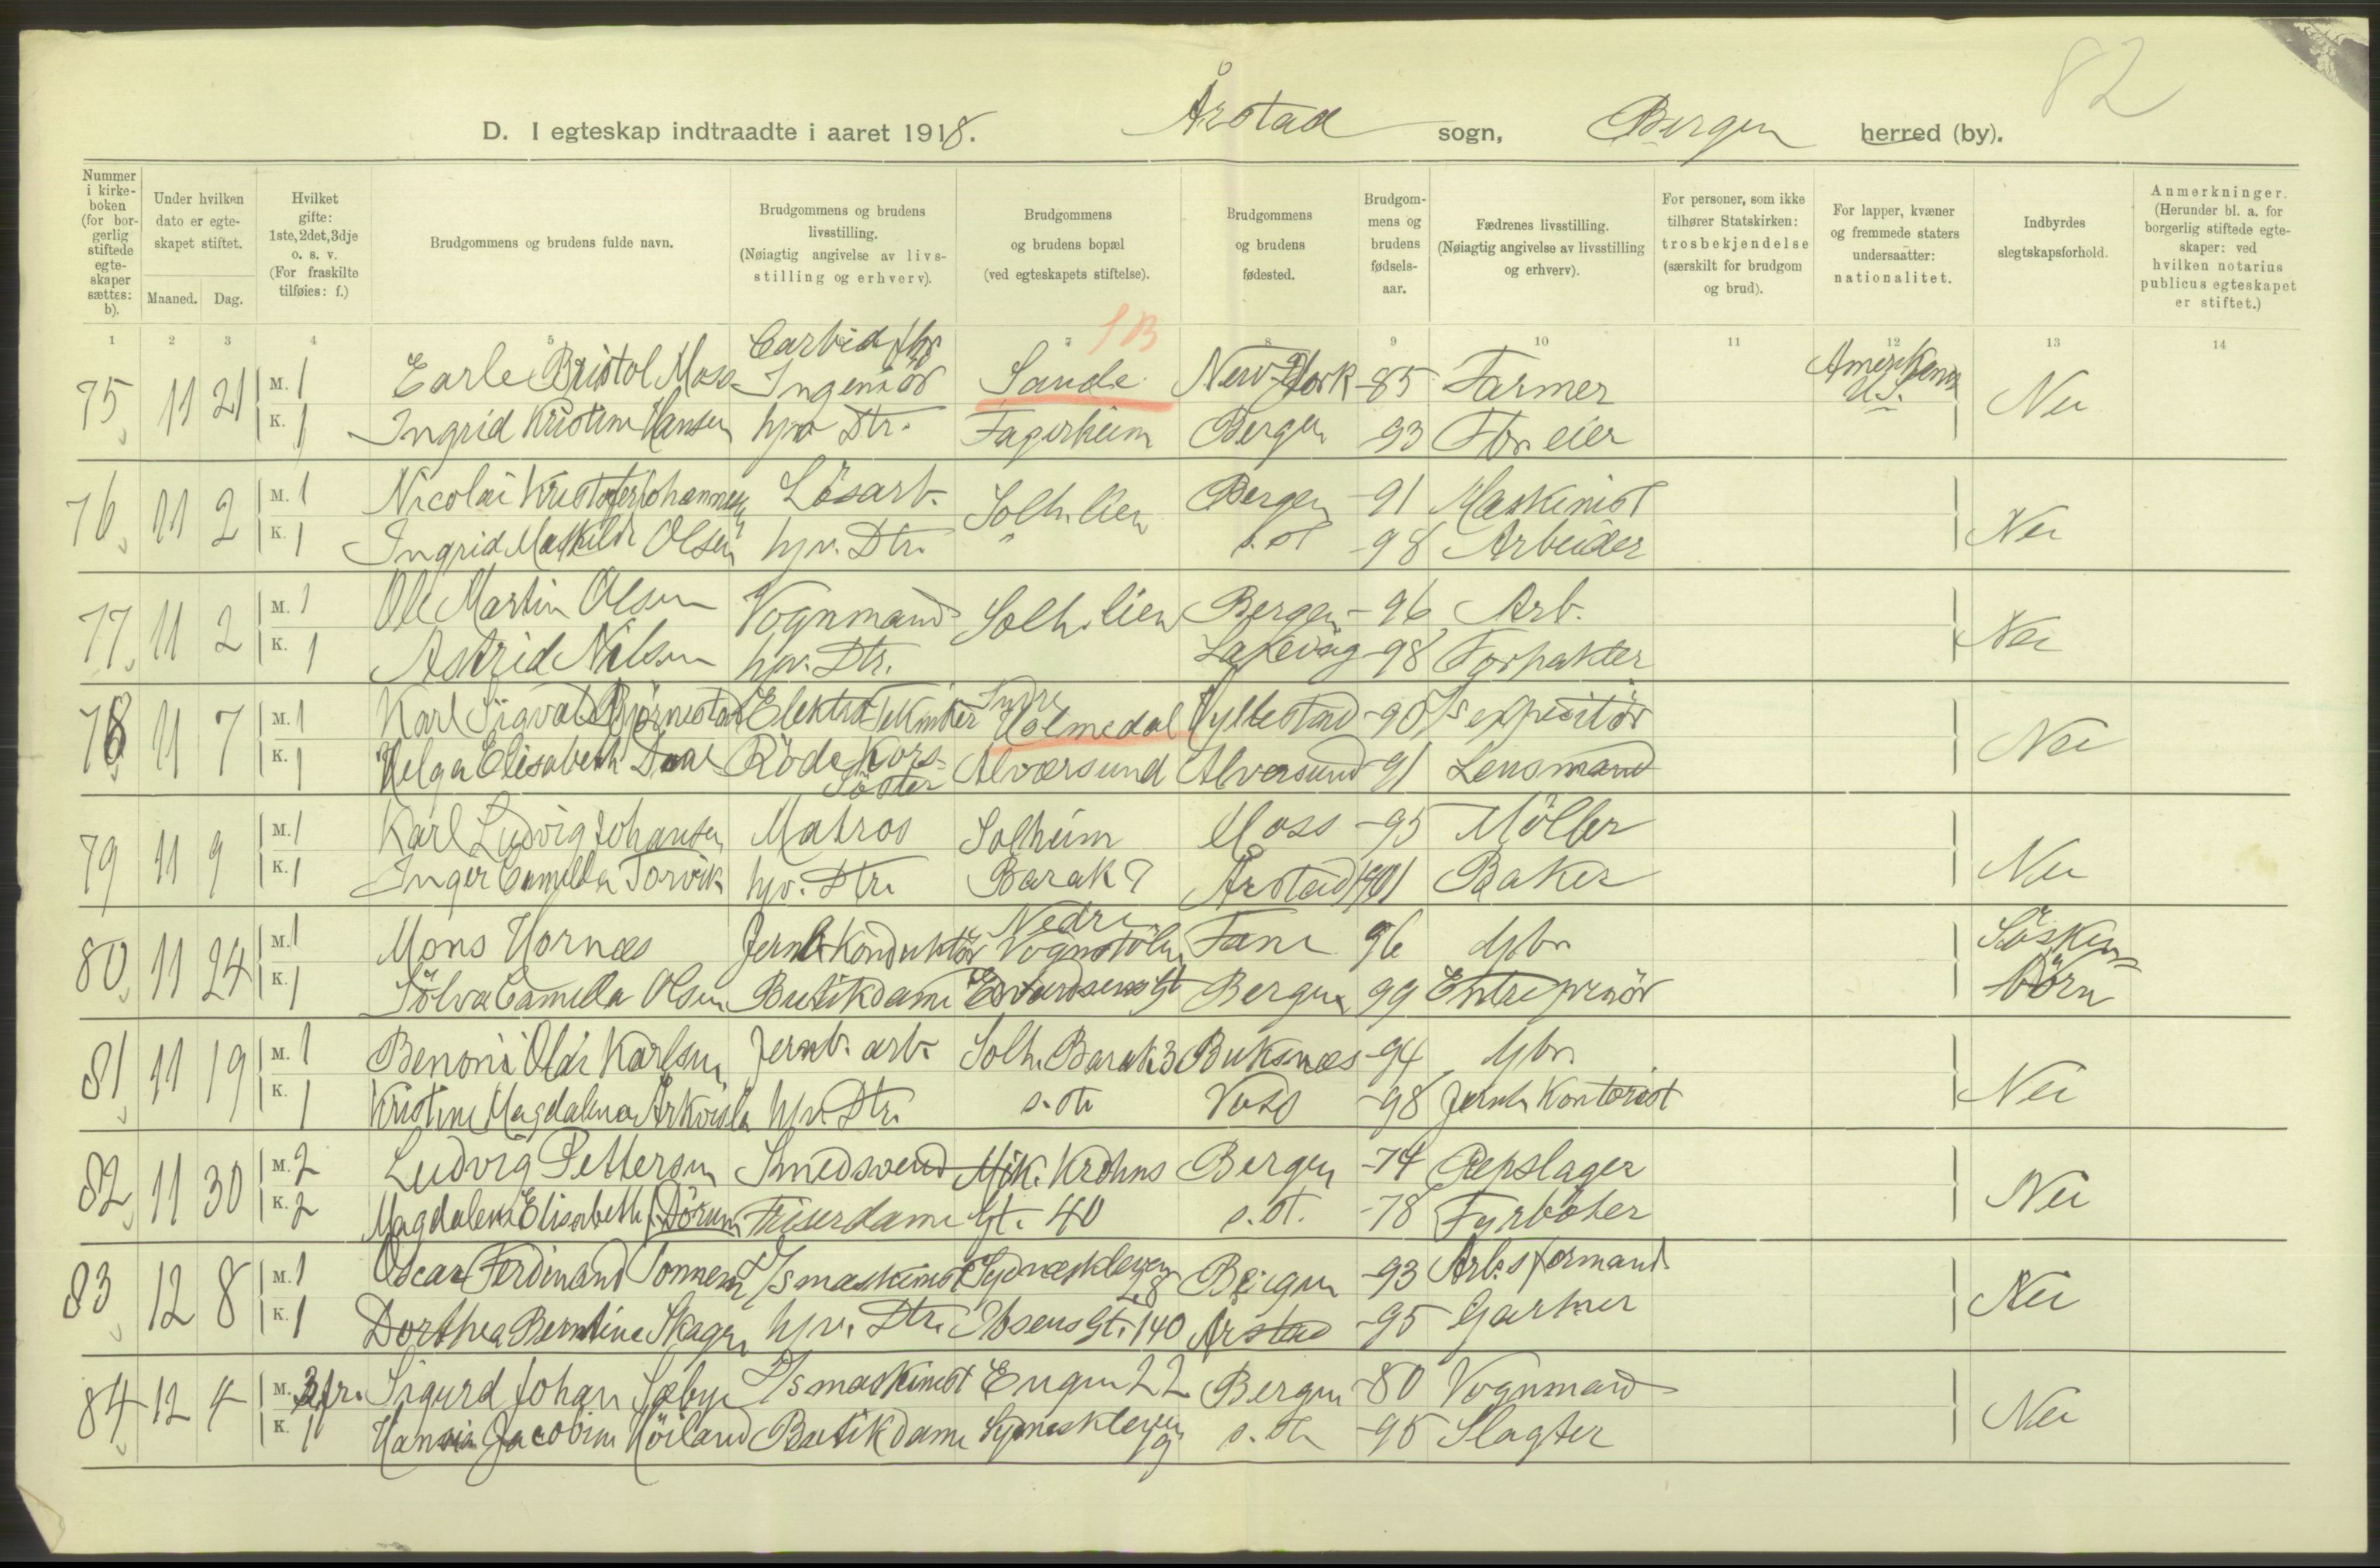 82
D. I egteskap indtraadte i aaret 1918. Årstad sogn, Bergen herred (by).
Nummer i kirkeboken (for borgerlig stiftede egteskaper sættes: b).
Under hvilken dato er egteskapet stiftet.
Maaned. Dag.
Hvilket gifte: 1ste, 2det, 3dje o. s. v. (For fraskilte tilføies: f.)
Brudgommens og brudens fulde navn.
Brudgommens og brudens livsstilling. (Nøiagtig angivelse av livsstilling og erhverv).
Brudgommens og brudens bopæl (ved egteskapets stiftelse).
Brudgommens og brudens fødested.
Brudgommens og brudens fødselsaar.
Fædrenes livsstilling. (Nøiagtig angivelse av livsstilling og erhverv).
For personer, som ikke tilhører Statskirken: trosbekjendelse (særskilt for brudgom og brud).
For lapper, kvæner og fremmede staters undersaatter: nationalitet.
Indbyrdes slegtskapsforhold.
Anmerkninger. (Herunder bl. a. for borgerlig stiftede egteskaper: ved hvilken notarius publicus egteskapet er stiftet.)
1 2 3 4 5 7 8 9 10 11 12 13 14
75 11 21 M. 1 Earle Bristol Moss Carbid fbr Ingeniör Sande New York -85 Farmer Amerikener U.S. Nei
K. 1 Ingrid Kristine Hansen hjv Dtr. Fagerheim Bergen -93 Fbr. eier
76 11 2 M. 1 Nicolai Kristofer Johannesen Lösarb. Solh. lien Bergen -91 Maskinist Nei
K. 1 Ingrid Mathilde Olsen hjv. Dtr. " s. st -98 Arbeider
77 11 2 M. 1 Ole Martin Olsen Vognmand Solh. lien Bergen -96 Arb. Nei
K. 1 Astrid Nilsen hjv. Dtr. Laxevåg -98 Forpakter
78 11 7 M. 1 Karl Sigvald Bjørnestad Elektro Tekniker Indre Holmedal Hyllestad -90 D/s expeditör Nei
K. 1 Helga Elisabeth Daae Röde Kors Söster Alværsund Alversund -91 Lensmand
79 11 9 M. 1 Karl Ludvig Johansen Matros Solheim Moss -95 Möller Nei
K. 1 Inger Camilla Torvik hjv. Dtr. Barak 9 Årstad 1901 Baker
80 11 24 M. 1 Mons Hornæs Jernb. Konduktör Nedre Vognstölen Fane 96 Gbr. Söskenbörn
K. 1 Sölva Camilla Olsen Butikdame Edvardsens Gt Bergen 99 Entreprenör
81 11 19 M. 1 Benoni Olai Karlsen Jernb. arb. Solh. Barak 3 Buksnæs -94 Gbr. Nei
K. 1 Kristine Magdalena Arkvisla hjv. Dtr. s. st. Voss -98 Jernb. Kontorist
82 11 30 M. 2 Ludvig Pettersen Smedsvend Mik. Krohns Bergen -74 Repslager Nei
K. 2 Magdalene Elisabeth Dörum Friserdame Gt. 40 s. st. -78 Fyrböter
83 12 8 M. 1 Oscar Ferdinand Tonnesen D/s maskinist Sydneskleven 28 Bergen -93 Arb.sformand Nei
K. 1 Dorthea Berntine Skagen hjv. Dtr. Ibsens Gt. 140 Årstad -95 Gartner
84 12 4 M. 2 fr. Sigurd Johan Sæbye D/s maskinist Engen 22 Bergen -80 Vognmand Nei
K. 1 Hansia Jacobine Höiland Butikdame Sydneskleven 19 s. st. -95 Slagter